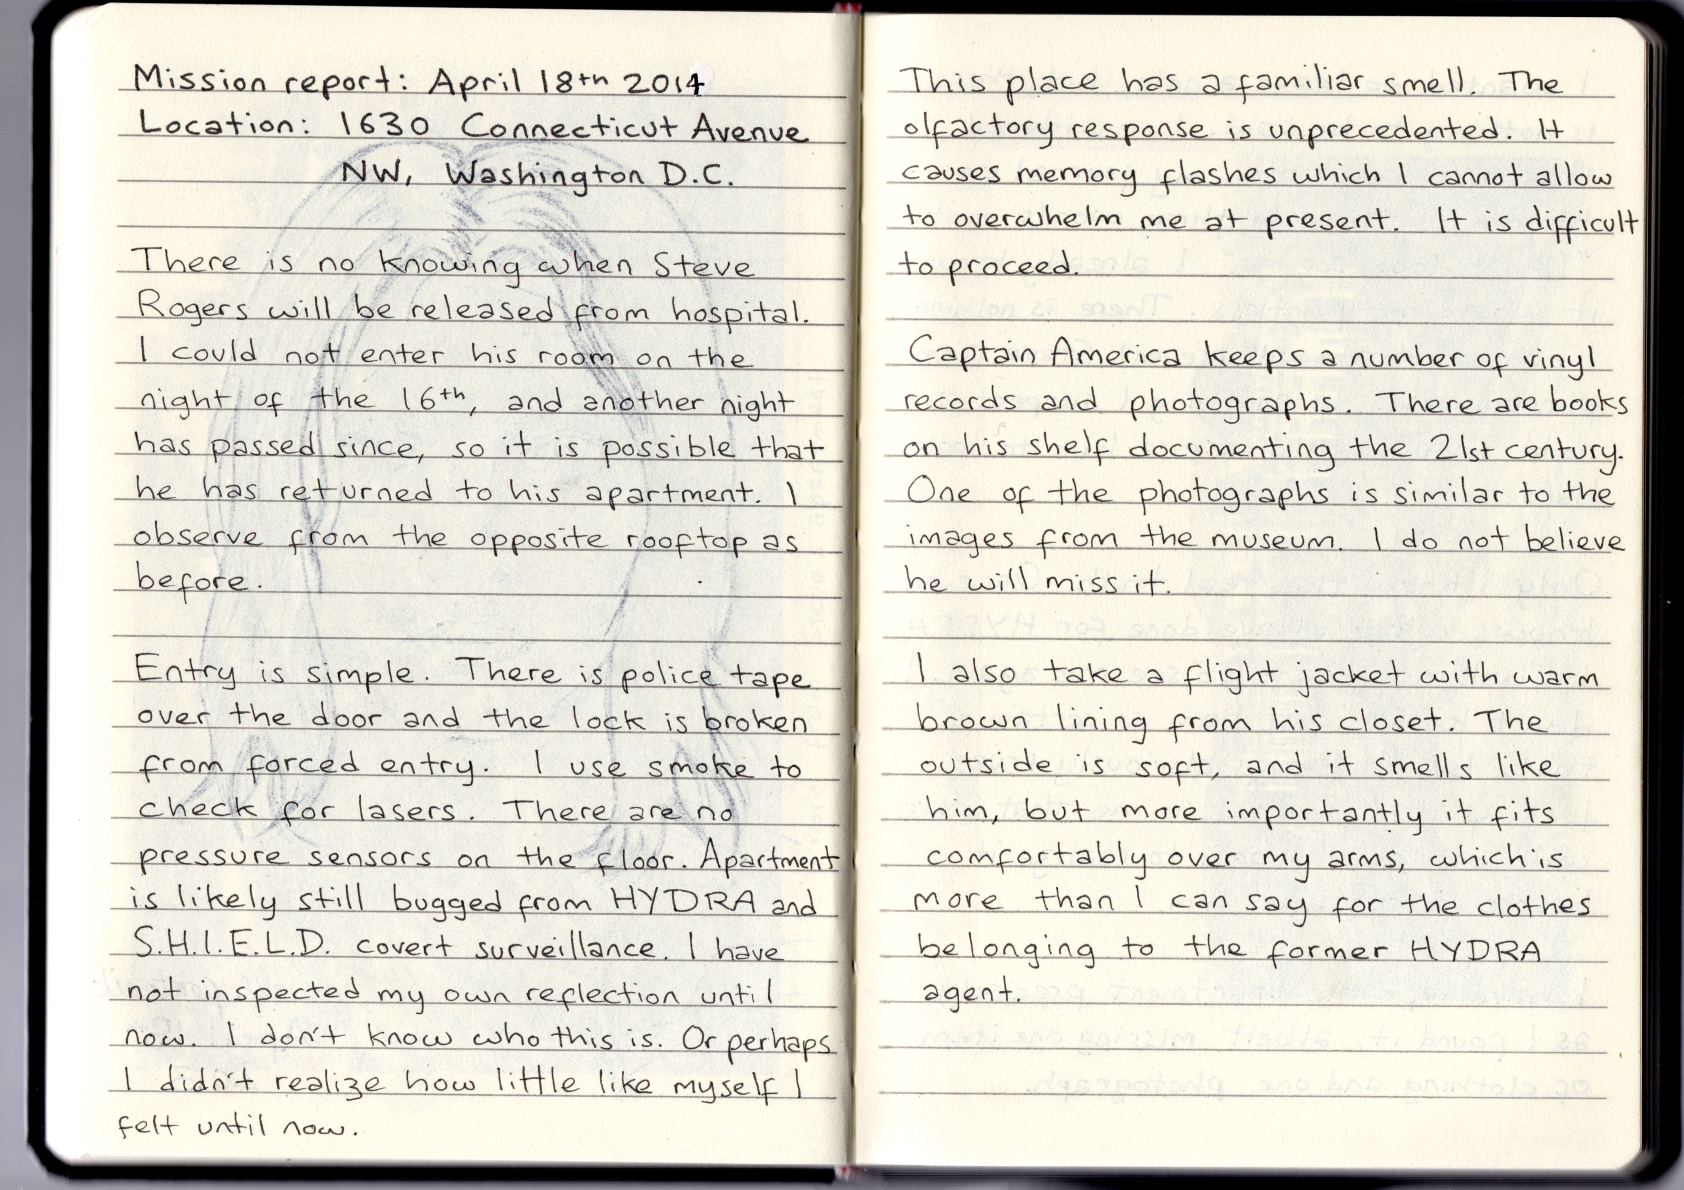 Mission report: April 18th 2014
Location: 1630 Connecticut Avenue
NW, Washington D.C.
There is no knowing when Steve
Rogers will be released from hospital.
I could not enter his room on the
night of the 16th, and another night
has passed since, so it is possible that
he has returned to his apartment. I
observe from the opposite rooftop as
before.
Entry is simple. There is police tape
over the door and the lock is broken
from forced entry. I use smoke to
check for lasers. There are no
pressure sensors on the floor. Apartment
is likely still bugged from HYDRA and
S.H.I.E.L.D. covert surveillance. I have
not inspected my own reflection until
now. I don't know who this is. Or perhaps
I didn't realize how little like myself I
felt until now.
This place has a familiar smell. The
olfactory response is unprecedented. It
causes memory flashes which I cannot allow
to overwhelm me at present. It is difficult
to proceed.
Captain America keeps a number of vinyl
records and photographs. There are books
on his shelf documenting the 21st century.
One of the photographs is similar to the
images from the museum. I do not believe
he will miss it.
I also take a flight jacket with warm
brown lining from his closet. The
outside is soft, and it smells like
him, but more importantly it fits
comfortably over my arms, which is
more than I can say for the clothes
belonging to the former HYDRA
agent.